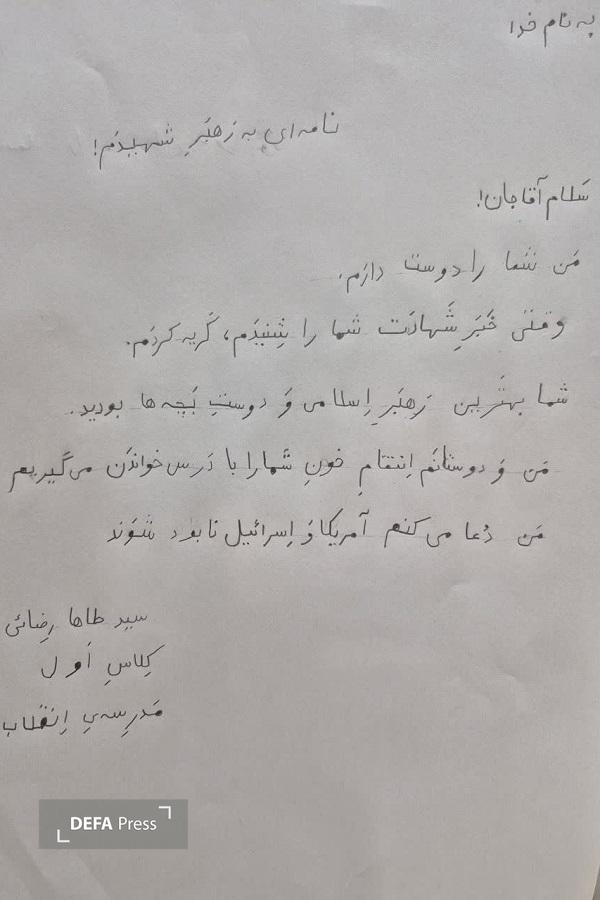 به نام خدا
نامه‌ای به رَهبَرِ شهیدَم!
سَلام آقاجان!
مَن شما را دوست دارَم.
وقتی خَبَرِ شَهادَت شما را شِنیدَم، گریه کردَم.
شما بهتَرین رَهبَرِ اِسلامی وَ دوستِ بَچه‌ها بودید.
مَن وَ دوستانَم اِنتقامِ خونِ شُما را با دَرس خواندَن می‌گیریم
مَن دُعا می‌کنم آمریکا وَ اِسرائیل نابود شَوَند
سید طاها رِضائی
کِلاسِ اَول
مَدرِسه‌یِ اِنقلاب
DEFA Press